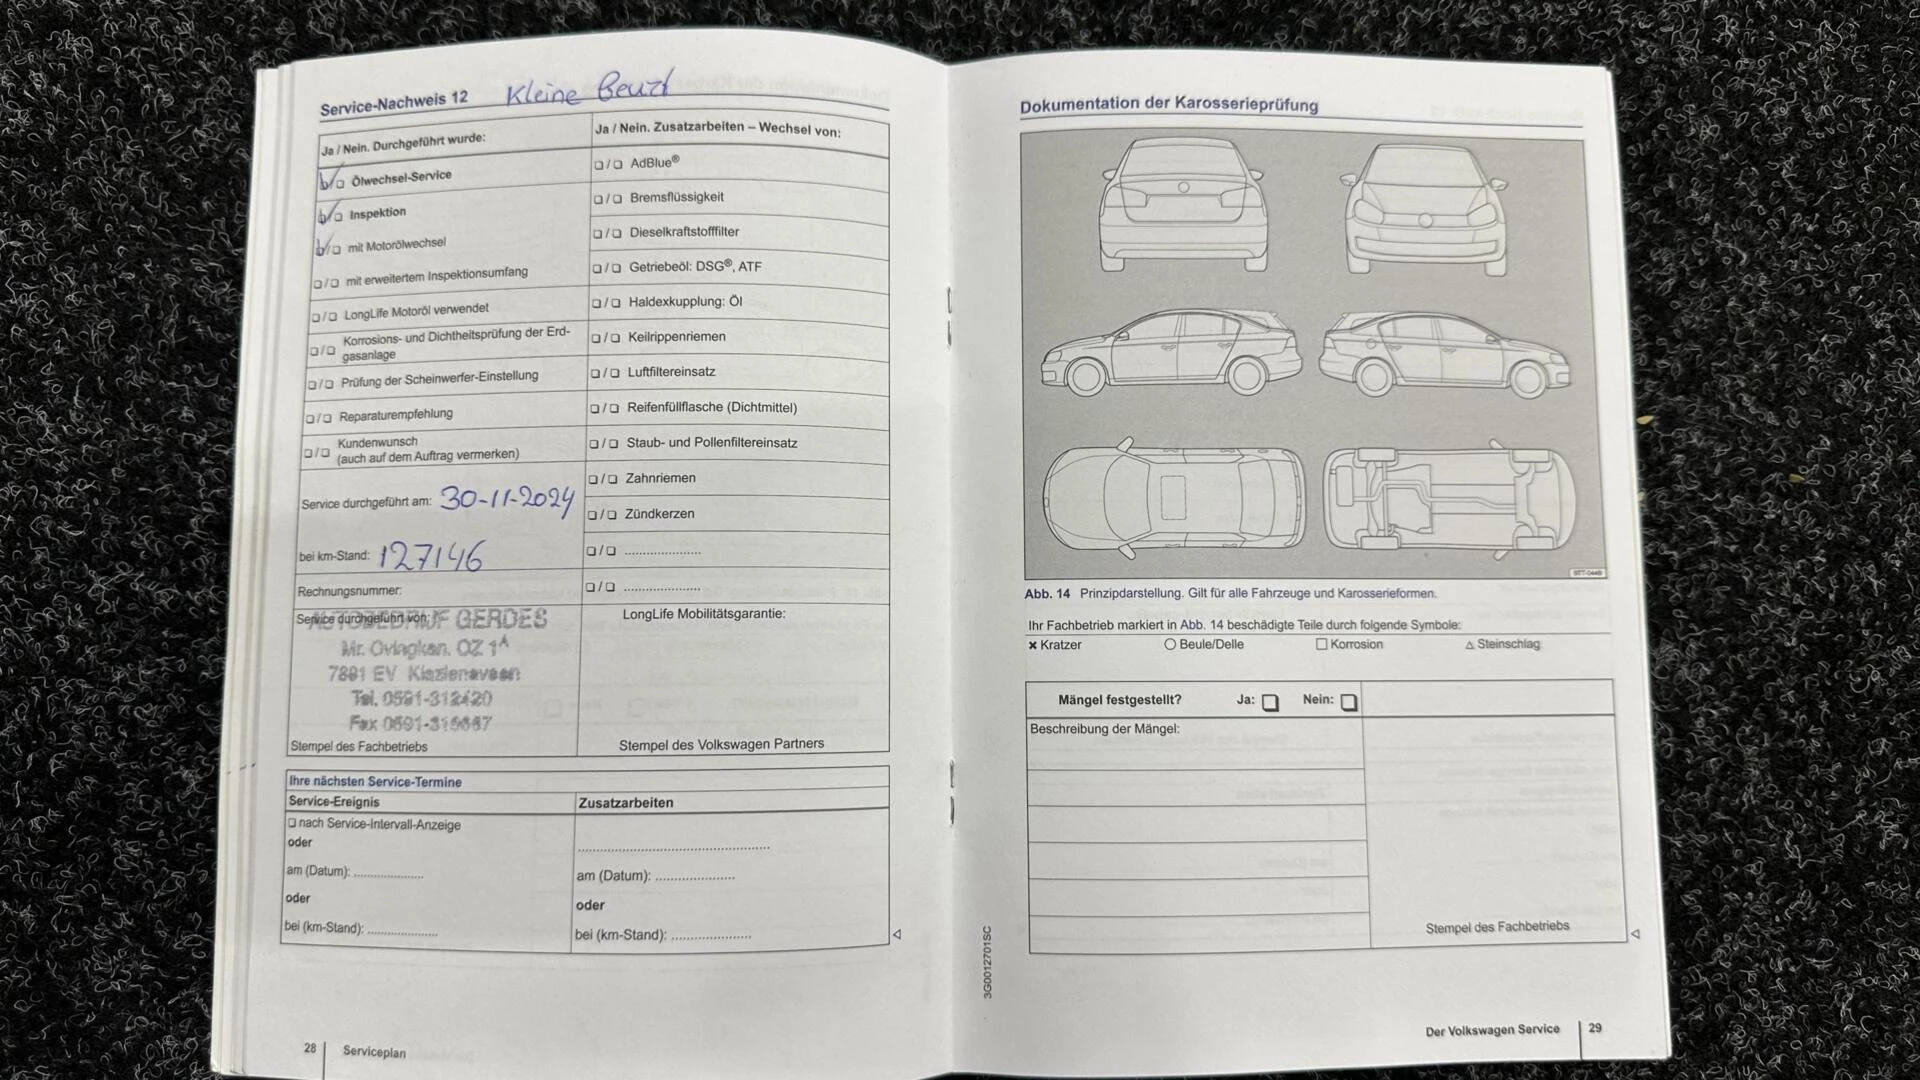 Service-Nachweis 12 Kleine Beurt
Ja / Nein. Durchgeführt wurde:
❏/❏ Ölwechsel-Service
❏/❏ Inspektion
❏/❏ mit Motorölwechsel
❏/❏ mit erweitertem Inspektionsumfang
❏/❏ LongLife Motoröl verwendet
❏/❏ Korrosions- und Dichtheitsprüfung der Erd-
gasanlage
❏/❏ Prüfung der Scheinwerfer-Einstellung
❏/❏ Reparaturempfehlung
❏/❏ Kundenwunsch
(auch auf dem Auftrag vermerken)
Service durchgeführt am: 30-11-2024
bei km-Stand: 127146
Rechnungsnummer:
Service durchgeführt von:
AUTOBEDRIJF GERDES
7891 EV Klazienaveen
Tel. 0591-312420
Stempel des Fachbetriebs
Ja / Nein. Zusatzarbeiten – Wechsel von:
❏/❏ AdBlue®
❏/❏ Bremsflüssigkeit
❏/❏ Dieselkraftstofffilter
❏/❏ Getriebeöl: DSG®, ATF
❏/❏ Haldexkupplung: Öl
❏/❏ Keilrippenriemen
❏/❏ Luftfiltereinsatz
❏/❏ Reifenfüllflasche (Dichtmittel)
❏/❏ Staub- und Pollenfiltereinsatz
❏/❏ Zahnriemen
❏/❏ Zündkerzen
❏/❏ .....................
❏/❏ .....................
LongLife Mobilitätsgarantie:
Stempel des Volkswagen Partners
Ihre nächsten Service-Termine
Service-Ereignis
❏ nach Service-Intervall-Anzeige
oder
am (Datum): ...................
oder
bei (km-Stand): ...................
Zusatzarbeiten
.....................................................
am (Datum): .....................
oder
bei (km-Stand): .....................
28 Serviceplan
Dokumentation der Karosserieprüfung
Abb. 14 Prinzipdarstellung. Gilt für alle Fahrzeuge und Karosserieformen.
Ihr Fachbetrieb markiert in Abb. 14 beschädigte Teile durch folgende Symbole:
✖ Kratzer ○ Beule/Delle □ Korrosion △ Steinschlag
Mängel festgestellt? Ja: ❏ Nein: ❏
Beschreibung der Mängel:
Stempel des Fachbetriebs
3G0012701SC
Der Volkswagen Service 29